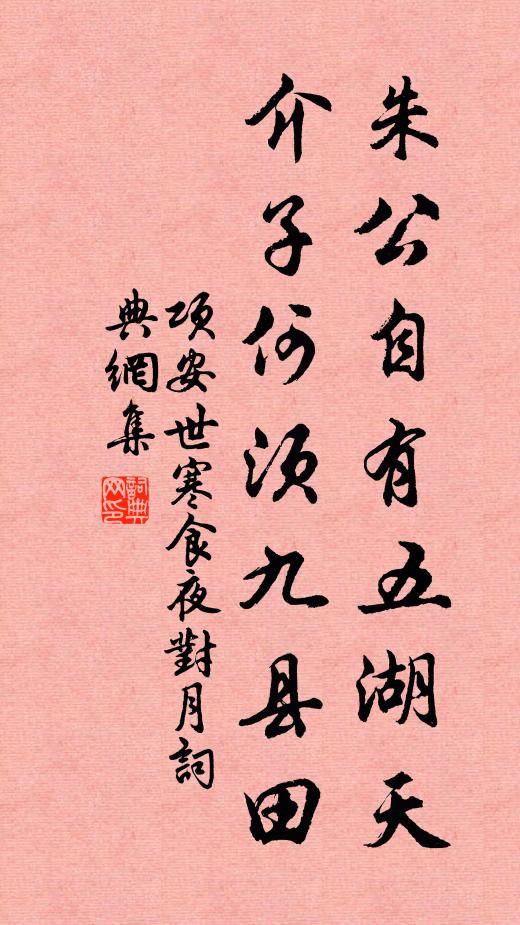 朱公自有五湖天
介子何须九县田
项安世寒食夜對月詞
典網集
詞典网印